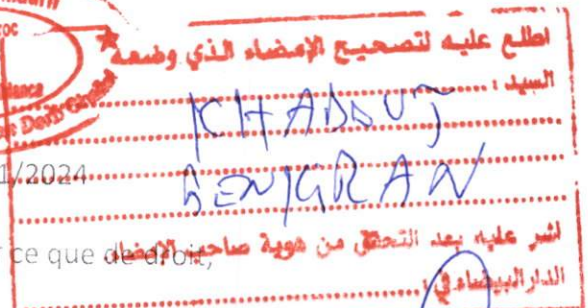 اطلع عليه لتصحيح الإمضاء الذي وضعه
السيد :
KHADDUJ
BENIGRAN
1/2024
ce que de droit,
اشر عليه بعد التحقق من هوية صاحب الإمضاء
الدار البيضاء في :